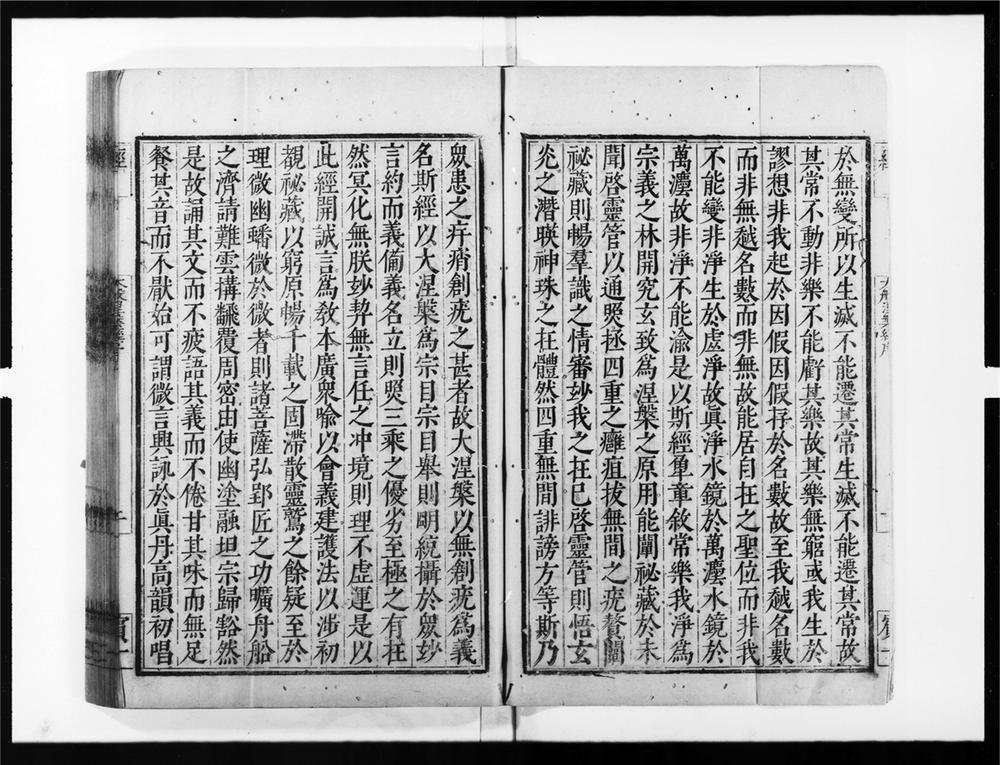 於無變所以生滅不能遷其常生滅不能遷其常故
其常不動非樂不能虧其樂故其樂無窮或我生於
謬想非我起於因假因假存於名數故至我越名數
而非無越名數而非無故能居自在之聖位而非我
不能變非淨生於虛淨故眞淨水鏡於萬灋水鏡於
萬灋故非淨不能渝是以斯經䨲章敘常樂我淨爲
宗義之林開究玄致爲涅槃之原用能闡祕藏於未
聞啓靈管以通照拯四重之癰疽拔無間之疣贅闡
祕藏則暢羣識之情審妙我之在已啓靈管則悟玄
光之潛映神珠之在體然四重無間誹謗方等斯乃
衆患之疔痟創疣之甚者故大涅槃以無創疣爲義
名斯經以大涅槃爲宗目宗目舉則明統攝於衆妙
言約而義備義名立則照三乘之優劣至極之有在
然冥化無朕妙契無言任之冲境則理不虛運是以
此經開誠言爲敎本廣衆喩以會義建護法以涉初
覩祕藏以窮原暢千載之固滯散靈鷲之餘疑至於
理微幽蟠微於微者則諸菩薩弘郢匠之功曠舟船
之濟請難雲搆飜覆周密由使幽塗融坦宗歸豁然
是故誦其文而不疲語其義而不倦甘其味而無足
餐其音而不猒始可謂微言興詠於眞丹高韻初唱